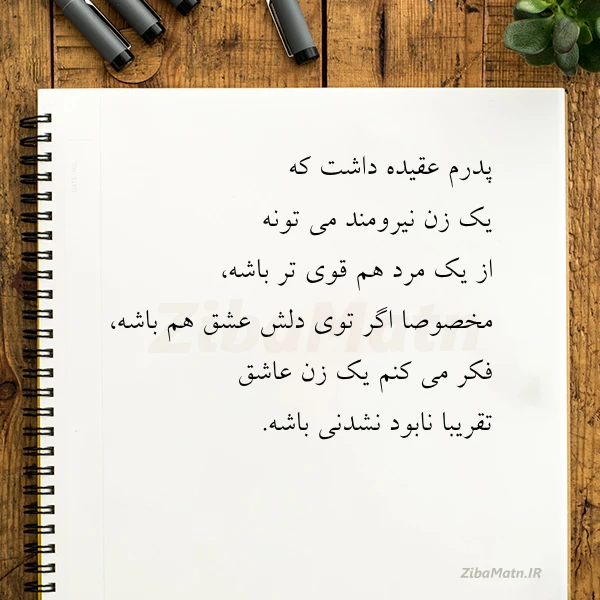 پدرم عقیده داشت که
یک زن نیرومند می تونه
از یک مرد هم قوی تر باشه،
مخصوصا اگر توی دلش عشق هم باشه،
فکر می کنم یک زن عاشق
تقریبا نابود نشدنی باشه.
ZibaMatn
ZibaMatn.IR